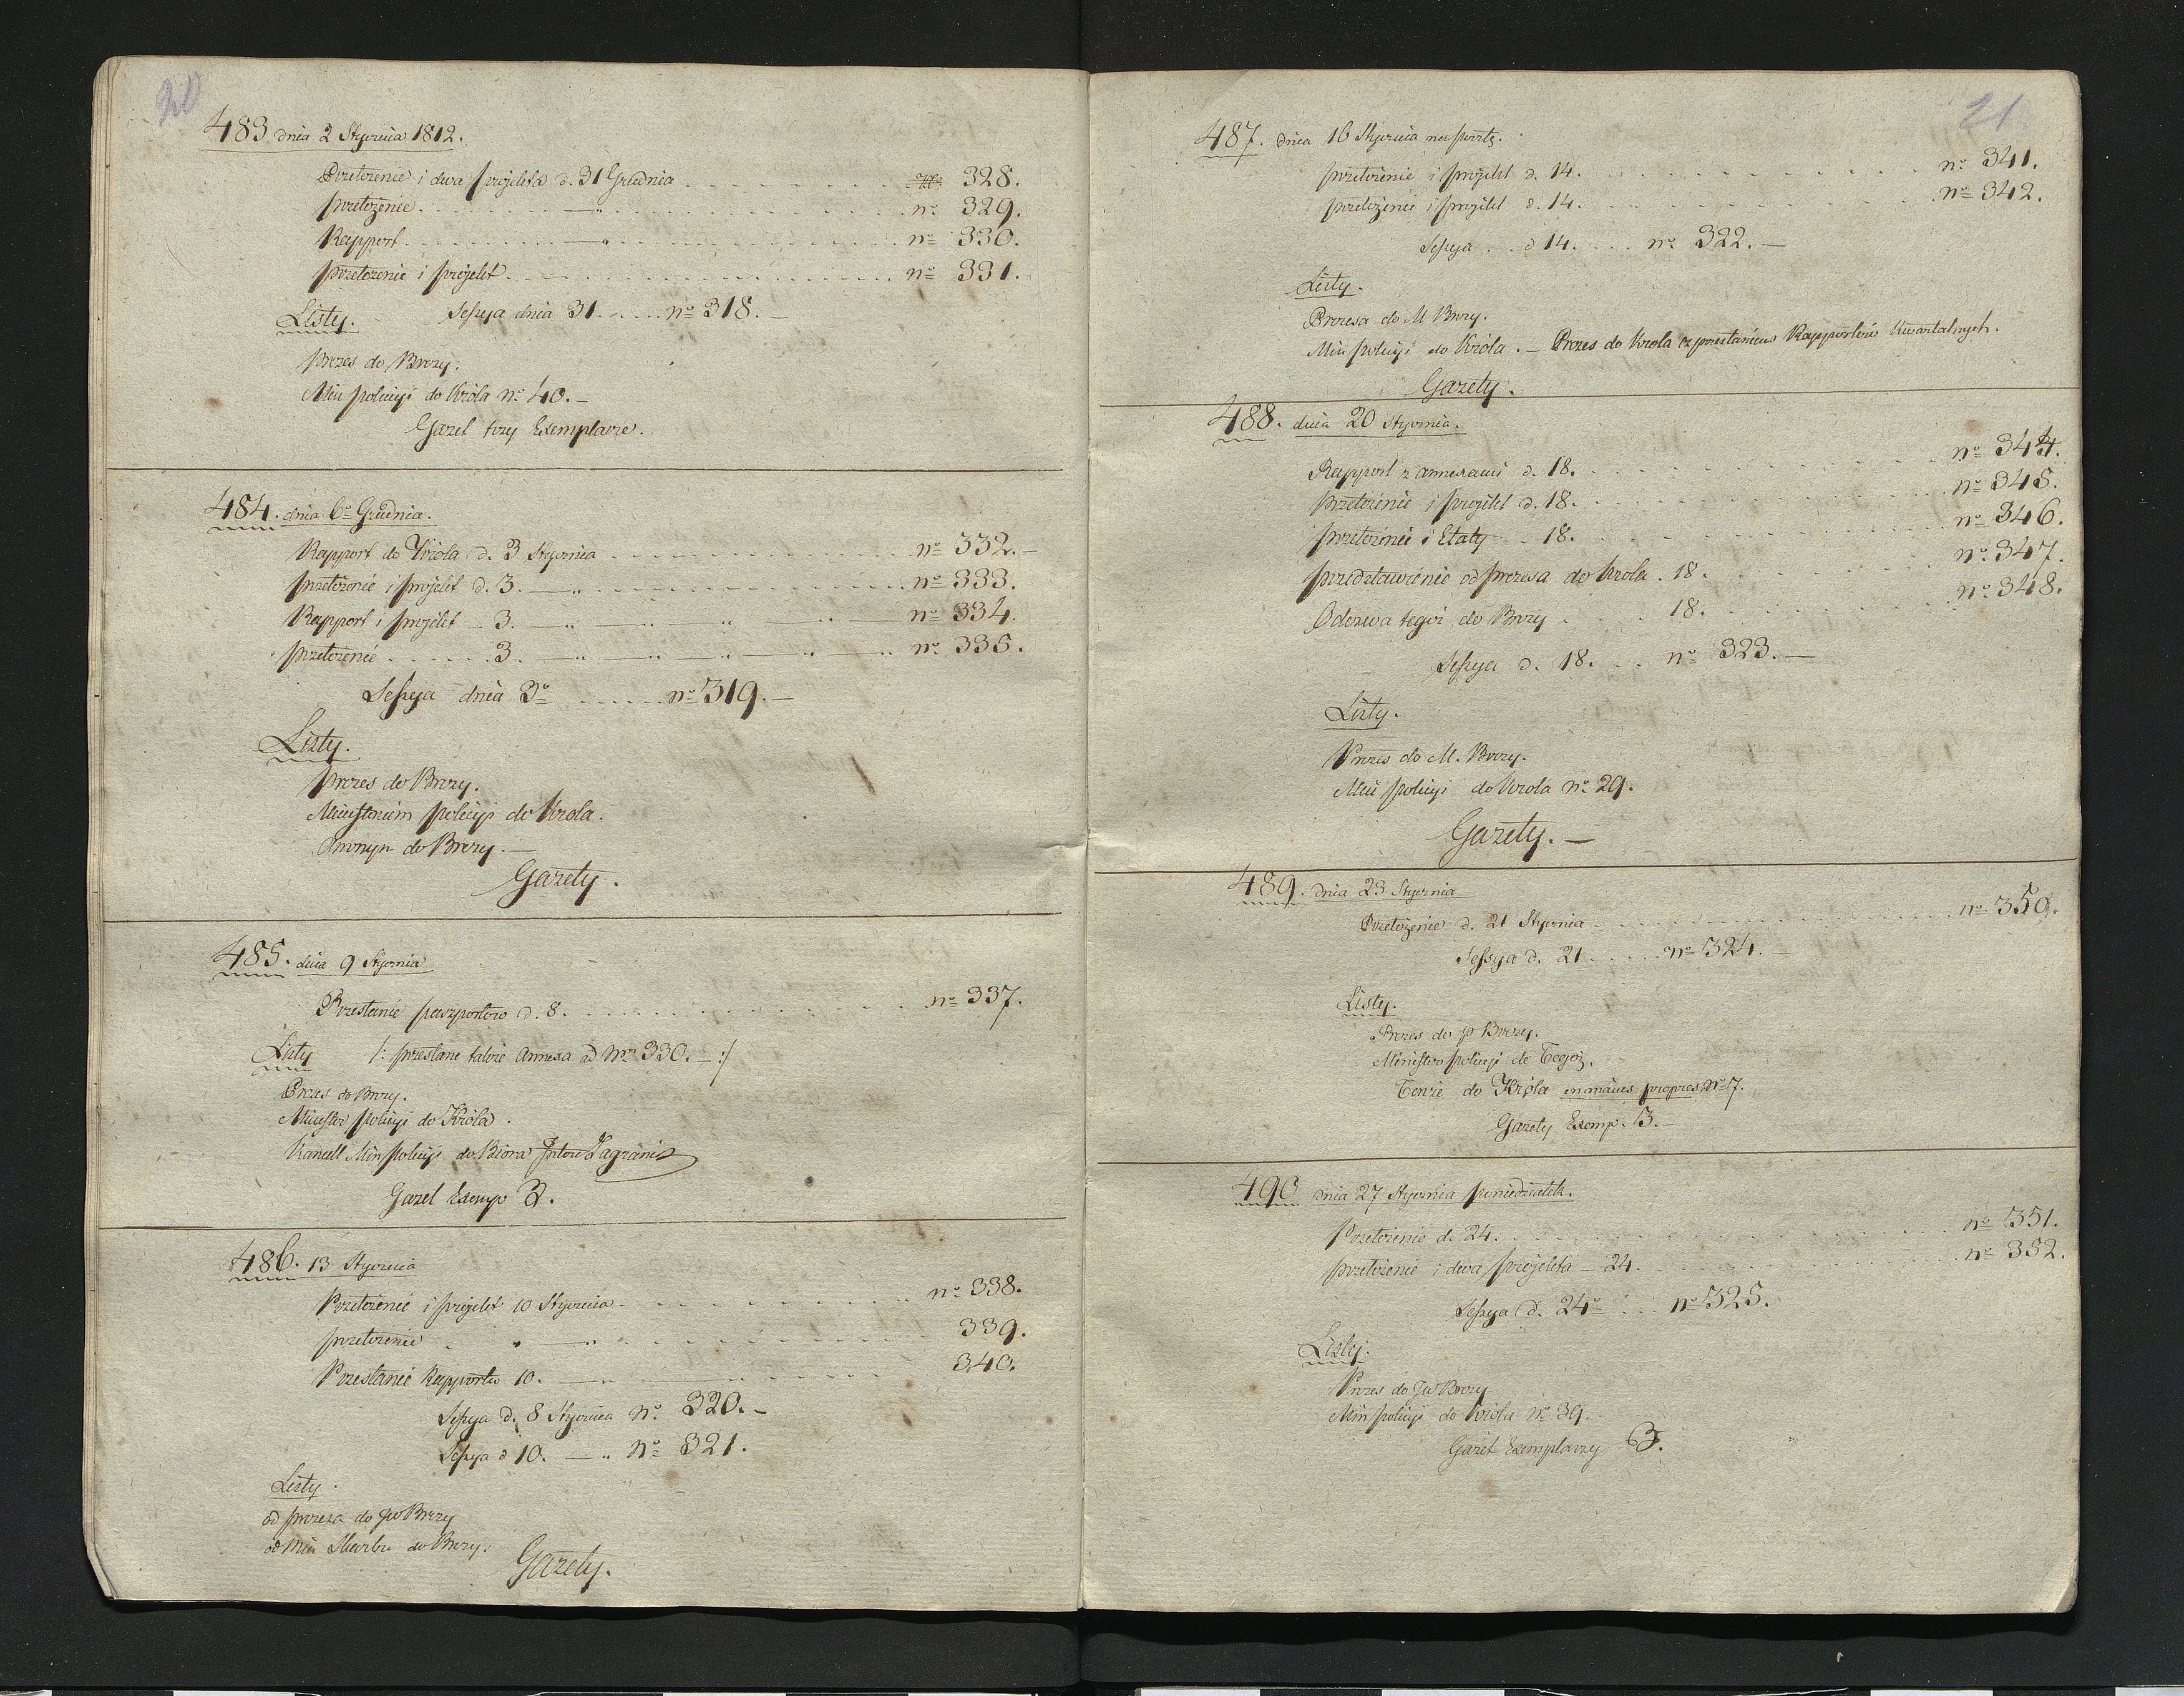 20
483 dnia 2 Stycznia 1812.
Przełożenie i dwa projekta d. 31 Grudnia 328.
przełożenie — " nº 329.
Rapport — " nº 330.
przełożenie i projekt nº 331.
Sessya dnia 31. nº 318. —
Listy.
Prezes do Brezy.
Min policyi do Króla nº 40. —
Gazet trzy Exemplarze.
484. dnia 6º Grudnia.
Rapport do Króla d. 3 Stycznia nº 332. —
przełożenie i projekt d. 3. — " nº 333.
Rapport i projekt 3. — " — " " " nº 334.
przełożenie 3. — " — " — " " — " nº 335.
Sessya dnia 3º nº 319. —
Listy.
Prezes do Brezy.
Ministerium policyi do Krola.
Anonym do Brezy. —
Gazety.
485. dnia 9 Stycznia
Przesłanie paszportow d. 8. nº 337.
Listy /: przesłane także annexa ad Nrm 330. — :/
Prezes do Brezy.
Minister policyi do Króla.
Kancell Min policyi do Biora Zagranic
Gazet Exemp 3.
486. 13 Stycznia
Przełożenie i projekt 10 Stycznia nº 338.
przełożenie " — " 339.
Przesłanie Rapportu 10. — " 340.
Sessya d. 8 Stycznia Nº 320. —
Sessya d 10. — " Nº 321.
Listy.
od prezesa do JW Brezy
od Min Skarbu do Brezy.
Gazety.
21
487. dnia 16 Stycznia na pocztę.
przełożenie i projekt d. 14. nº 341.
przełożenie i projekt d. 14. nº 342.
Sessya d 14. nº 322. —
Listy.
Prezesa do M Brezy.
Min policyi do Króla. — Prezes do Krola z przesłaniem Rapportów kwartalnych.
Gazety.
488. dnia 20 Stycznia.
Rapport z annexami d. 18. nº 344.
przełożenie i projekt d. 18. nº 345.
przełożenie i Etaty 18. nº 346.
przedstawienie od prezesa do Krola. 18. nº 347.
Odezwa tegoż do Brezy 18. nº 348.
Sessya d. 18. nº 323. —
Listy.
Prezes do M. Brezy.
Min policyi do Krola nº 29.
Gazety. —
489. dnia 23 Stycznia
Przełożenie d. 21 Stycznia nº 350.
Sessya d. 21 nº 324. —
Listy.
Prezes do JP Brezy.
Minister policyi do Tegoż.
Tenże do Króla en maines propres Nº 7.
Gazety Exemp. 3. —
490 dnia 27 Stycznia poniedziałek.
Przełożenie d. 24. nº 351.
przełożenie i dwa projekta — 24. nº 352.
Sessya d. 24º nº 325.
Listy.
Prezes do JW Brezy
Min policyi do Króla nº 39.
Gazet Exemplarzy 3.